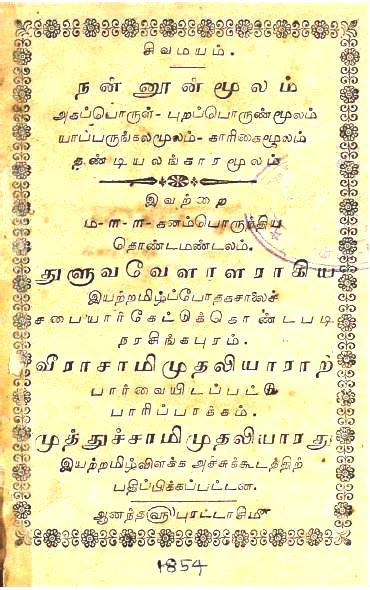 சிவமயம்.
நன்னூன்மூலம்
அகப்பொருள்- புறப்பொருண்மூலம்
யாப்பருங்கலமூலம்- காரிகைமூலம்
தண்டியலங்காரமூலம்
இவற்றை
ம-ள-ள-கனம்பொருந்திய
தொண்டமண்டலம்.
துளுவவேளாளராகிய
இயற்றமிழ்ப்போதகசாலைச்
சபையார்கேட்டுக்கொண்டபடி
நரசிங்கபுரம்.
வீராசாமிமுதலியாராற்
பார்வையிடப்பட்டு
பாரிப்பாக்கம்.
முத்துச்சாமிமுதலியாரது
இயற்றமிழ்விளக்க அச்சுக்கூடத்திற்
பதிப்பிக்கப்பட்டன.
ஆனந்த௵புரட்டாசிமீ
1854